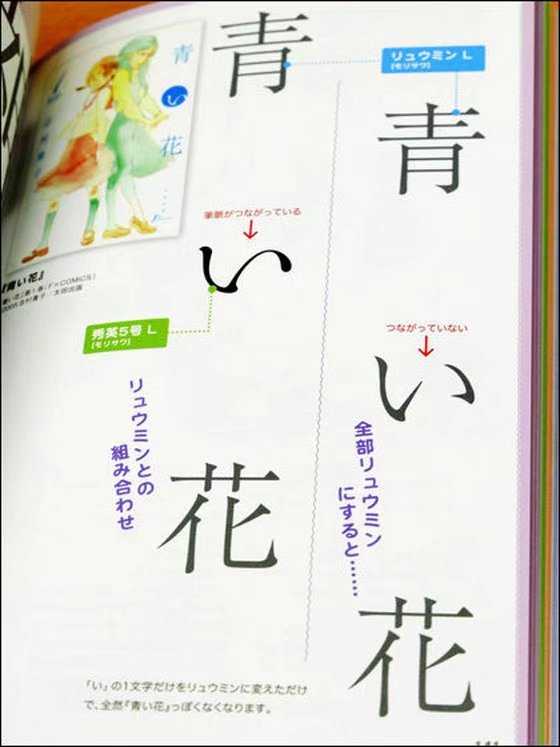 青い花
青
リュウミン L
[モリサワ]
青
筆脈がつながっている
い
『青い花』
秀英5号 L
[モリサワ]
つながっていない
い
リュウミンとの
組み合わせ
全部リュウミン
にすると……
花
花
「い」の1文字だけをリュウミンに変えただけ
で、全然『青い花』っぽくなくなります。